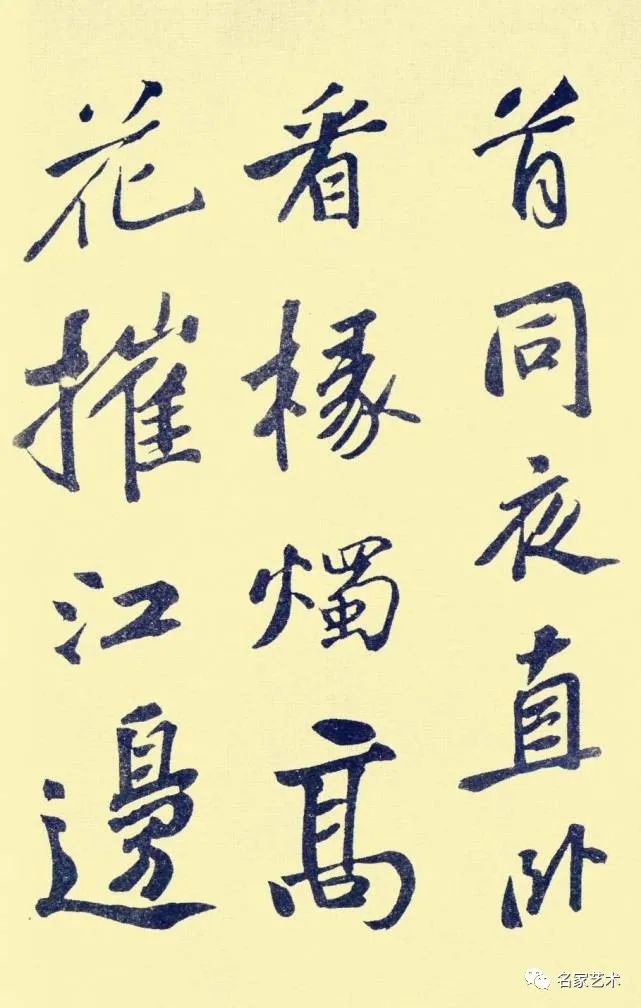 首同夜直卧
看椽燭髙
花摧江邊
名家艺术